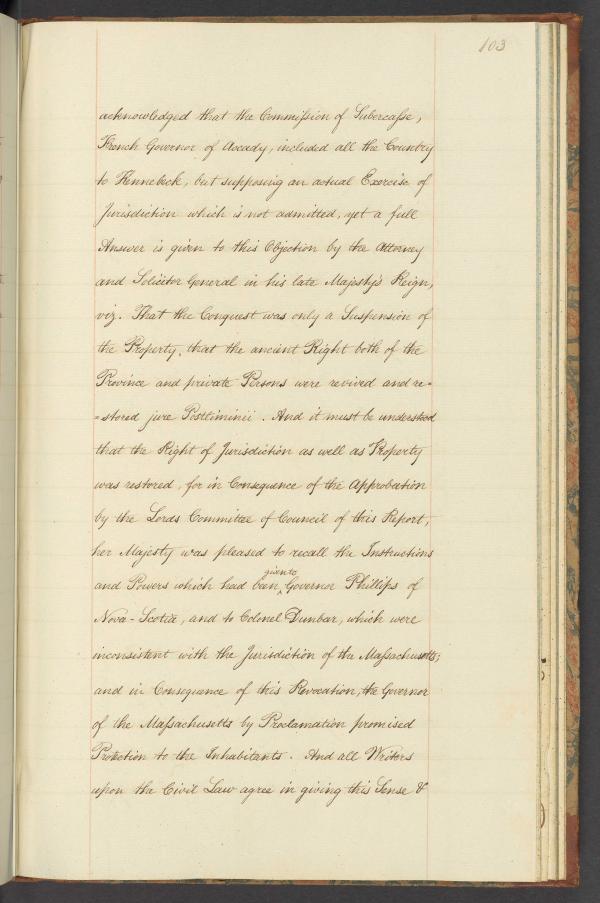 103
acknowledged that the Commission of Subercasse,
French Governor of Accady, included all the Country
to Kennebeck, but supposing an actual Exercise of
Jurisdiction which is not admitted, yet a full
Answer is given to this Objection by the Attorney
and Solicitor General in his late Majesty's Reign,
viz. That the Conquest was only a Suspension of
the Property, that the ancient Right both of the
Province and private Persons were revived and re=
=stored jure Postliminii. And it must be understood
that the Right of Jurisdiction as well as Property
was restored, for in Consequence of the Approbation
by the Lords Committee of Council of this Report,
her Majesty was pleased to recall the Instructions
given to
and Powers which had been ‸ Governor Phillips of
Nova-Scotia, and to Colonel Dunbar, which were
inconsistent with the Jurisdiction of the Massachusetts;
and in Consequence of this Revocation, the Governor
of the Massachusetts by Proclamation promised
Protection to the Inhabitants. And all Writers
upon the Civil Law agree in giving this Sense &